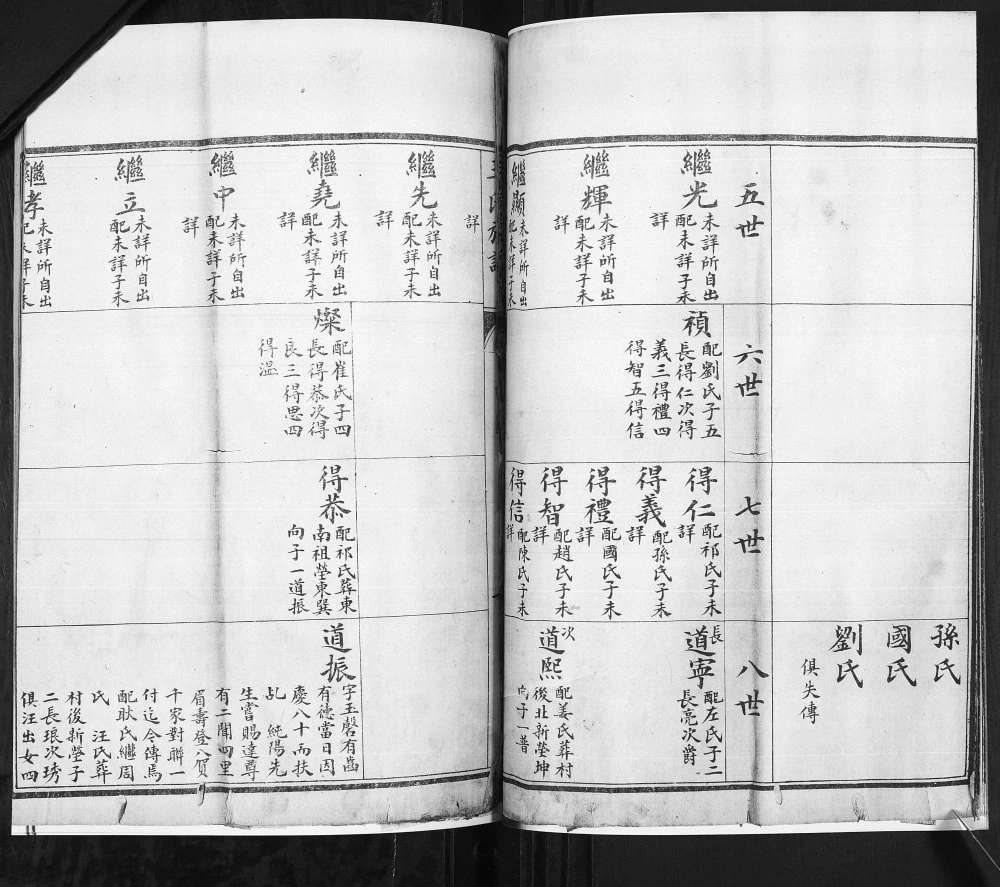 孫氏
國氏
劉氏
俱失傳
五世
六世
七世
八世
繼光
未詳所自出
配未詳子未
詳
繼輝
未詳所自出
配未詳子未
詳
繼顯
未詳所自出
配未詳子未
禎
配劉氏子五
長得仁次得
義三得禮四
得智五得信
得仁
配祁氏子未
詳
得義
配孫氏子未
詳
得禮
配國氏子未
詳
得智
配趙氏子未
詳
得信
配陳氏子未
詳
長
道寧
配左氏子二
長亮次爵
次
道熙
配姜氏葬村
後北新塋坤
向子一普
氏族譜
詳
繼先
未詳所自出
配未詳子未
詳
繼堯
未詳所自出
配未詳子未
詳
繼中
未詳所自出
配未詳子未
詳
繼立
未詳所自出
配未詳子未
繼孝
未詳所自出
配未詳子未
燦
配崔氏子四
長得恭次得
良三得思四
得溫
得恭
配祁氏葬東
南祖塋東巽
向子一道振
道振
字玉磬有齒
有德當日因
慶八十而扶
乩 純陽先
生嘗賜達尊
有二聞四里
眉壽登八賀
千家對聯一
付迄今傳焉
配耿氏繼周
氏 汪氏葬
村後新塋子
二長琅次琇
俱汪出女四